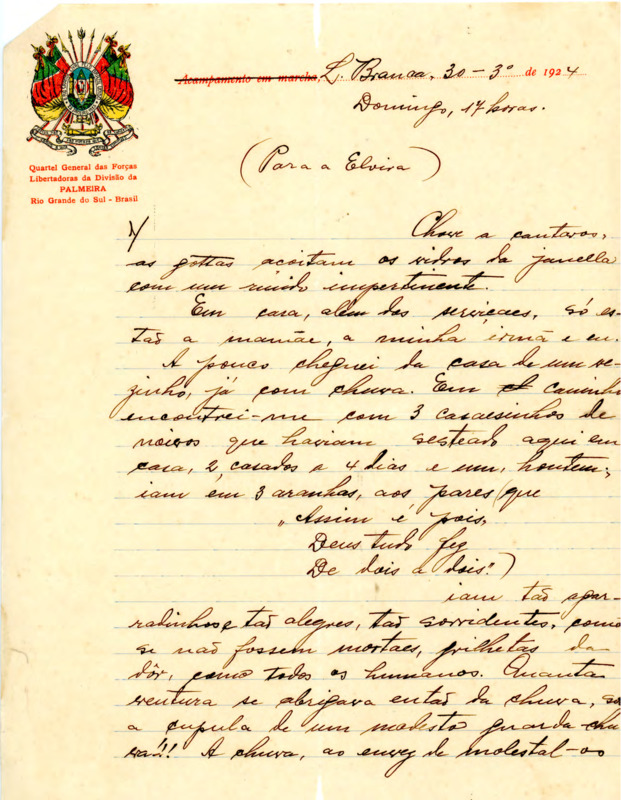 Acampamento em marcha, L. Branca, 30 - 3º de 1924
Domingo, 17 horas.
Quartel General das Forças
Libertadoras da Divisão da
PALMEIRA
Rio Grande do Sul - Brasil
(Para a Elvira)
1/
Chove a cantaros,
as gottas acoitam os vidros da janella
com um ruido impertinente.
Em casa, além dos serviçaes, só es-
tão a mamãe, a minha irmã e eu.
A pouco cheguei da casa de um ve-
zinho, já com chuva. Em caminho
encontrei-me com 3 casaesinhos de
noivos que haviam sesteado aqui em
casa, 2, casados a 4 dias e um, hontem;
iam em 3 aranhas, aos pares (que
„Assim é pois,
Deus tudo fez
De dois a dois".)
iam tão apar-
radinhos e tão alegres, tão sorridentes, como
se não fossem mortaes, grilhetas da
dôr, como todos os humanos. Quanta
ventura se abrigava então da chuva, sob
a cupula de um modesto guarda-chu
va!! A chuva, ao envez de molestal-os